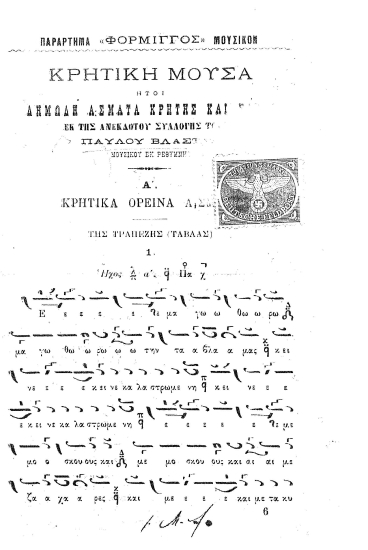 ΠΑΡΑΡΤΗΜΑ «ΦΟΡΜΙΓΓΟΣ» ΜΟΥΣΙΚΟΝ
ΚΡΗΤΙΚΗ ΜΟΥΣΑ
ΗΤΟΙ
ΔΗΜΩΔΗ ΑΣΜΑΤΑ ΚΡΗΤΗΣ ΚΑΙ
ΕΚ ΤΗΣ ΑΝΕΚΔΟΤΟΥ ΣΥΛΛΟΓΗΣ
ΠΑΥΛΟΥ ΒΛΑΣΤ
ΜΟΥΣΙΚΟΥ ΕΚ ΡΕΘΥΜΝΗ
Α΄.
ΚΡΗΤΙΚΑ ΟΡΕΙΝΑ ΑΣ
ΤΗΣ ΤΡΑΠΕΖΗΣ (ΤΑΒΛΑΣ)
1.
Ἦχος α΄. Πα
Ε ε ε ε ε θε μα γω ω θω ω ρω
μα γω θω ω ρω ω ω την τα α βλα α μας κει
νε ε ε ε κει νε κα λα στρωμε νη κει νε ε ε
ε κει νε κα λα στρωμε νη ε ε ε ε ε με
μο ο σκου ους και με μο σκου ους και αι αι με
ζα α χα α ρες και με ε ε ε και με τα κυ
6